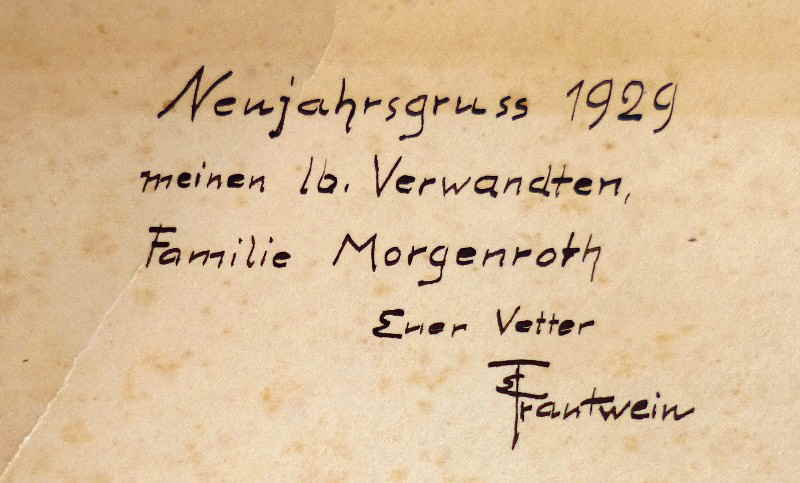 Neujahrsgruss 1929
meinen lb. Verwandten,
Familie Morgenroth
Euer Vetter
Trautwein